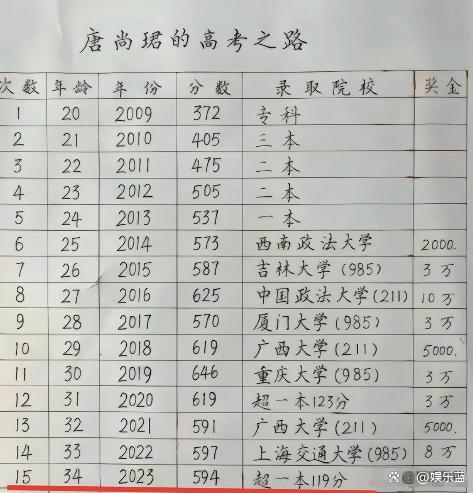 唐尚珺的高考之路
次数 年龄 年份 分数 录取院校 奖金
1 20 2009 372 专科
2 21 2010 405 三本
3 22 2011 475 二本
4 23 2012 505 二本
5 24 2013 537 一本
6 25 2014 573 西南政法大学 2000.
7 26 2015 587 吉林大学(985) 3万
8 27 2016 625 中国政法大学(211) 10万
9 28 2017 570 厦门大学(985) 3万
10 29 2018 619 广西大学(211) 5000.
11 30 2019 646 重庆大学(985) 3万
12 31 2020 619 超一本123分 3万
13 32 2021 591 广西大学(211) 5000.
14 33 2022 597 上海交通大学(985) 8万
15 34 2023 594 超一本119分
@娱乐蓝